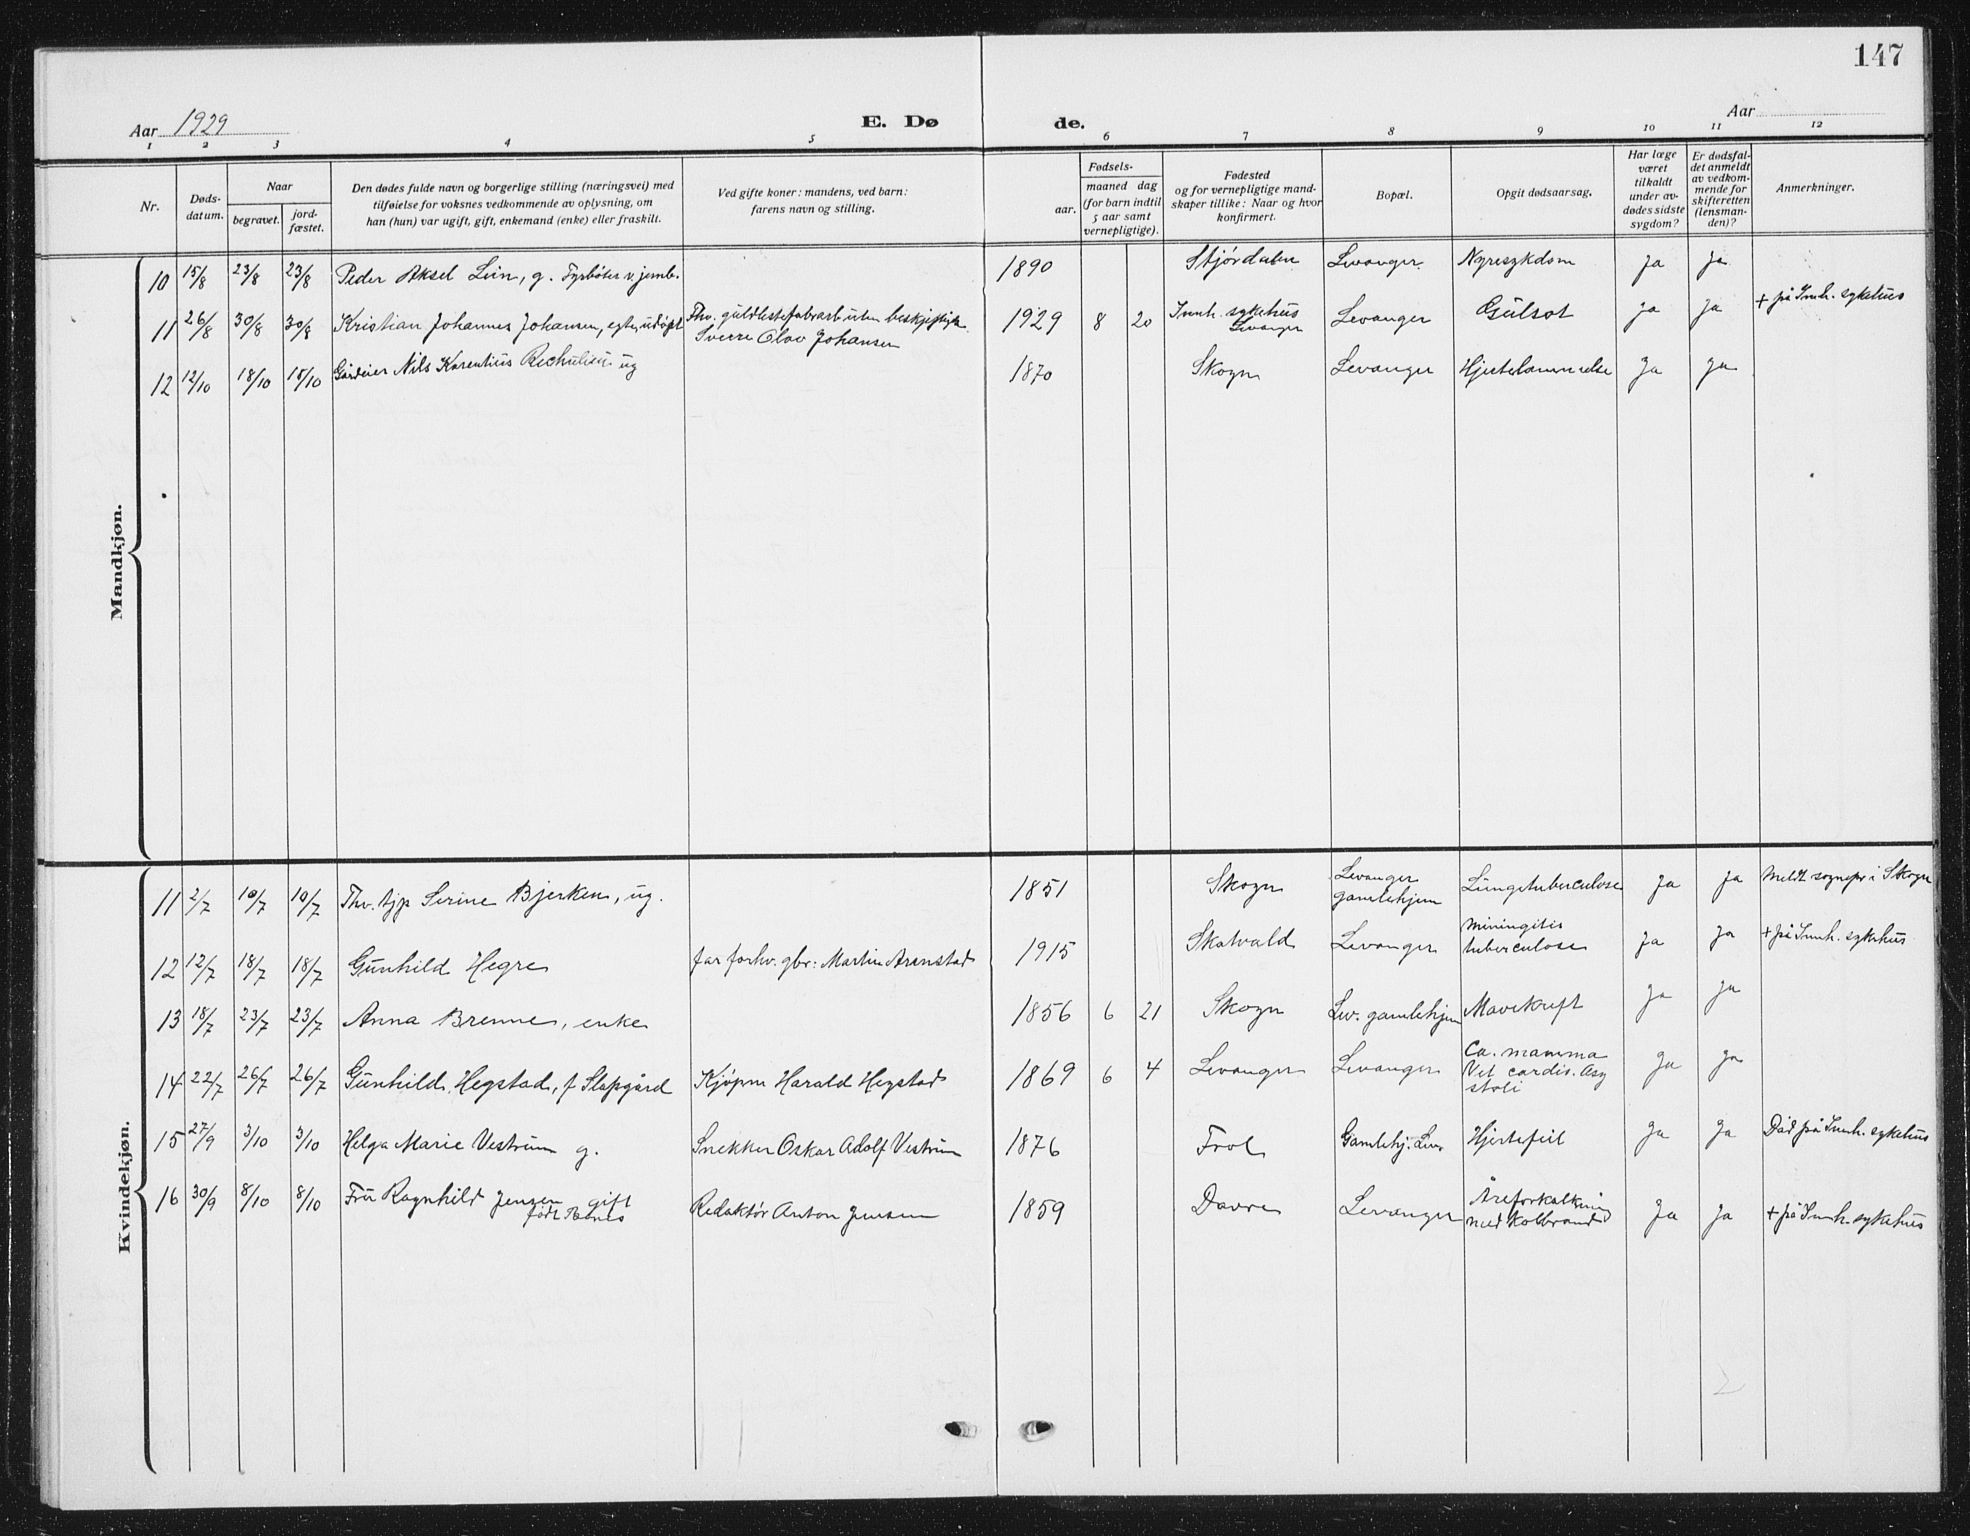 147
Aar 1929
E. Dø
de.
Aar
1 2 3 4 5 6 7 8 9 10 11 12
Nr.
Døds-
datum.
Naar
begravet.
jord-
fæstet.
Den dødes fulde navn og borgerlige stilling (næringsvei) med
tilføielse for voksnes vedkommende av oplysning, om
han (hun) var ugift, gift, enkemand (enke) eller fraskilt.
Ved gifte koner: mandens, ved barn:
farens navn og stilling.
Fødsels-
aar.
maaned dag
(for barn indtil
5 aar samt
vernepligtige).
Fødested
og for vernepligtige mand-
skaper tillike: Naar og hvor
konfirmert.
Bopæl.
Opgit dødsaarsag.
Har læge
været
tilkaldt
under av-
dødes sidste
sygdom?
Er dødsfal-
det anmeldt
av vedkom-
mende for
skifteretten
(lensman-
den)?
Anmerkninger.
Mandkjøn.
10 15/8 23/8 23/8 Peder Aksel Lein, g. Fyrbøter v. jernb. 1890 Stjørdalen Levanger Nyresykdom ja ja
11 26/8 30/8 30/8 Kristian Johannes Johansen, egte, udøpt Thv. guldlistefabrarb uten beskjeftigk. 1929 8 20 Innh. sykehus Levanger Gulsot ja ja + på Innh. sykehus
Sverre Olav Johansen Levanger
12 12/10 18/10 15/10 Gårdeier Nils Korentius ug 1870 Skogn Levanger Hjertelammelse Ja Ja
Kvindekjøn.
11 2/7 10/7 10/7 Thv. tjp Serine Bjerken, ug. 1851 Skogn Levanger
gamlehjem Lungetuberculose ja ja Meldt sognepr i Skogn
12 12/7 18/7 18/7 Gunhild Hegre far forhv. gbr: Martin Arnstad 1915 Skatvald Levanger Miningitis
tuberculose ja ja + på Innh. sykehus
13 18/7 23/7 23/7 Anna Brenne, enke 1856 6 21 Skogn Lev. gamlehjem Mavekreft ja ja
14 22/7 26/7 26/7 Gunhild Hegstad, f Slapgård Kjøpm Harald Hegstad 1869 6 4 Levanger Levanger Ca. mamma
Vit cardis. Asy
stoli ja ja
15 27/9 3/10 3/10 Helga Marie Vestrum g. Snekker Oskar Adolf Vestrum 1876 Frol Gamlehj. Lev. Hjertefeil Ja Ja Død på Innh. sykehus
16 30/9 8/10 8/10 Fru Ragnhild Jensen gift
født Redaktør Anton Jensen 1859 Dovre Levanger Åreforkalkning
med Kolbrand Ja Ja + på Innh. sykehus